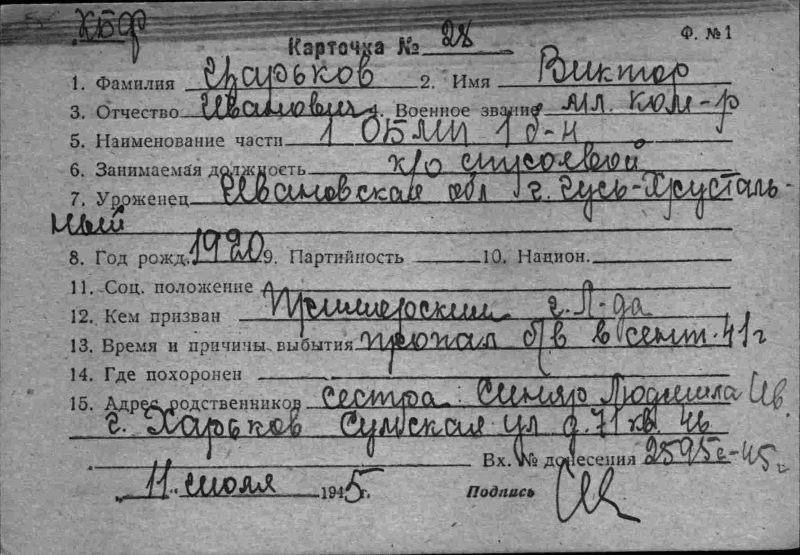 КБФ
Карточка № 28 Ф. № 1
1. Фамилия Царьков 2. Имя Виктор
3. Отчество Иванович 4. Военное звание мл. ком-р
5. Наименование части 1 ОБМП 1 б-н
6. Занимаемая должность к/о
7. Уроженец Ивановская обл г. Гусь-Хрусталь-
ный
8. Год рожд. 1920 9. Партийность 10. Национ.
11. Соц. положение
12. Кем призван Приморским г. Л-да
13. Время и причины выбытия пропал б/в в сент. 41 г
14. Где похоронен
15. Адрес родственников сестра Людмила Ив.
г. Харьков Сумская ул д. 71 кв. 46
Вх. № донесения 2595с-45г
11 июля 1945 г. Подпись